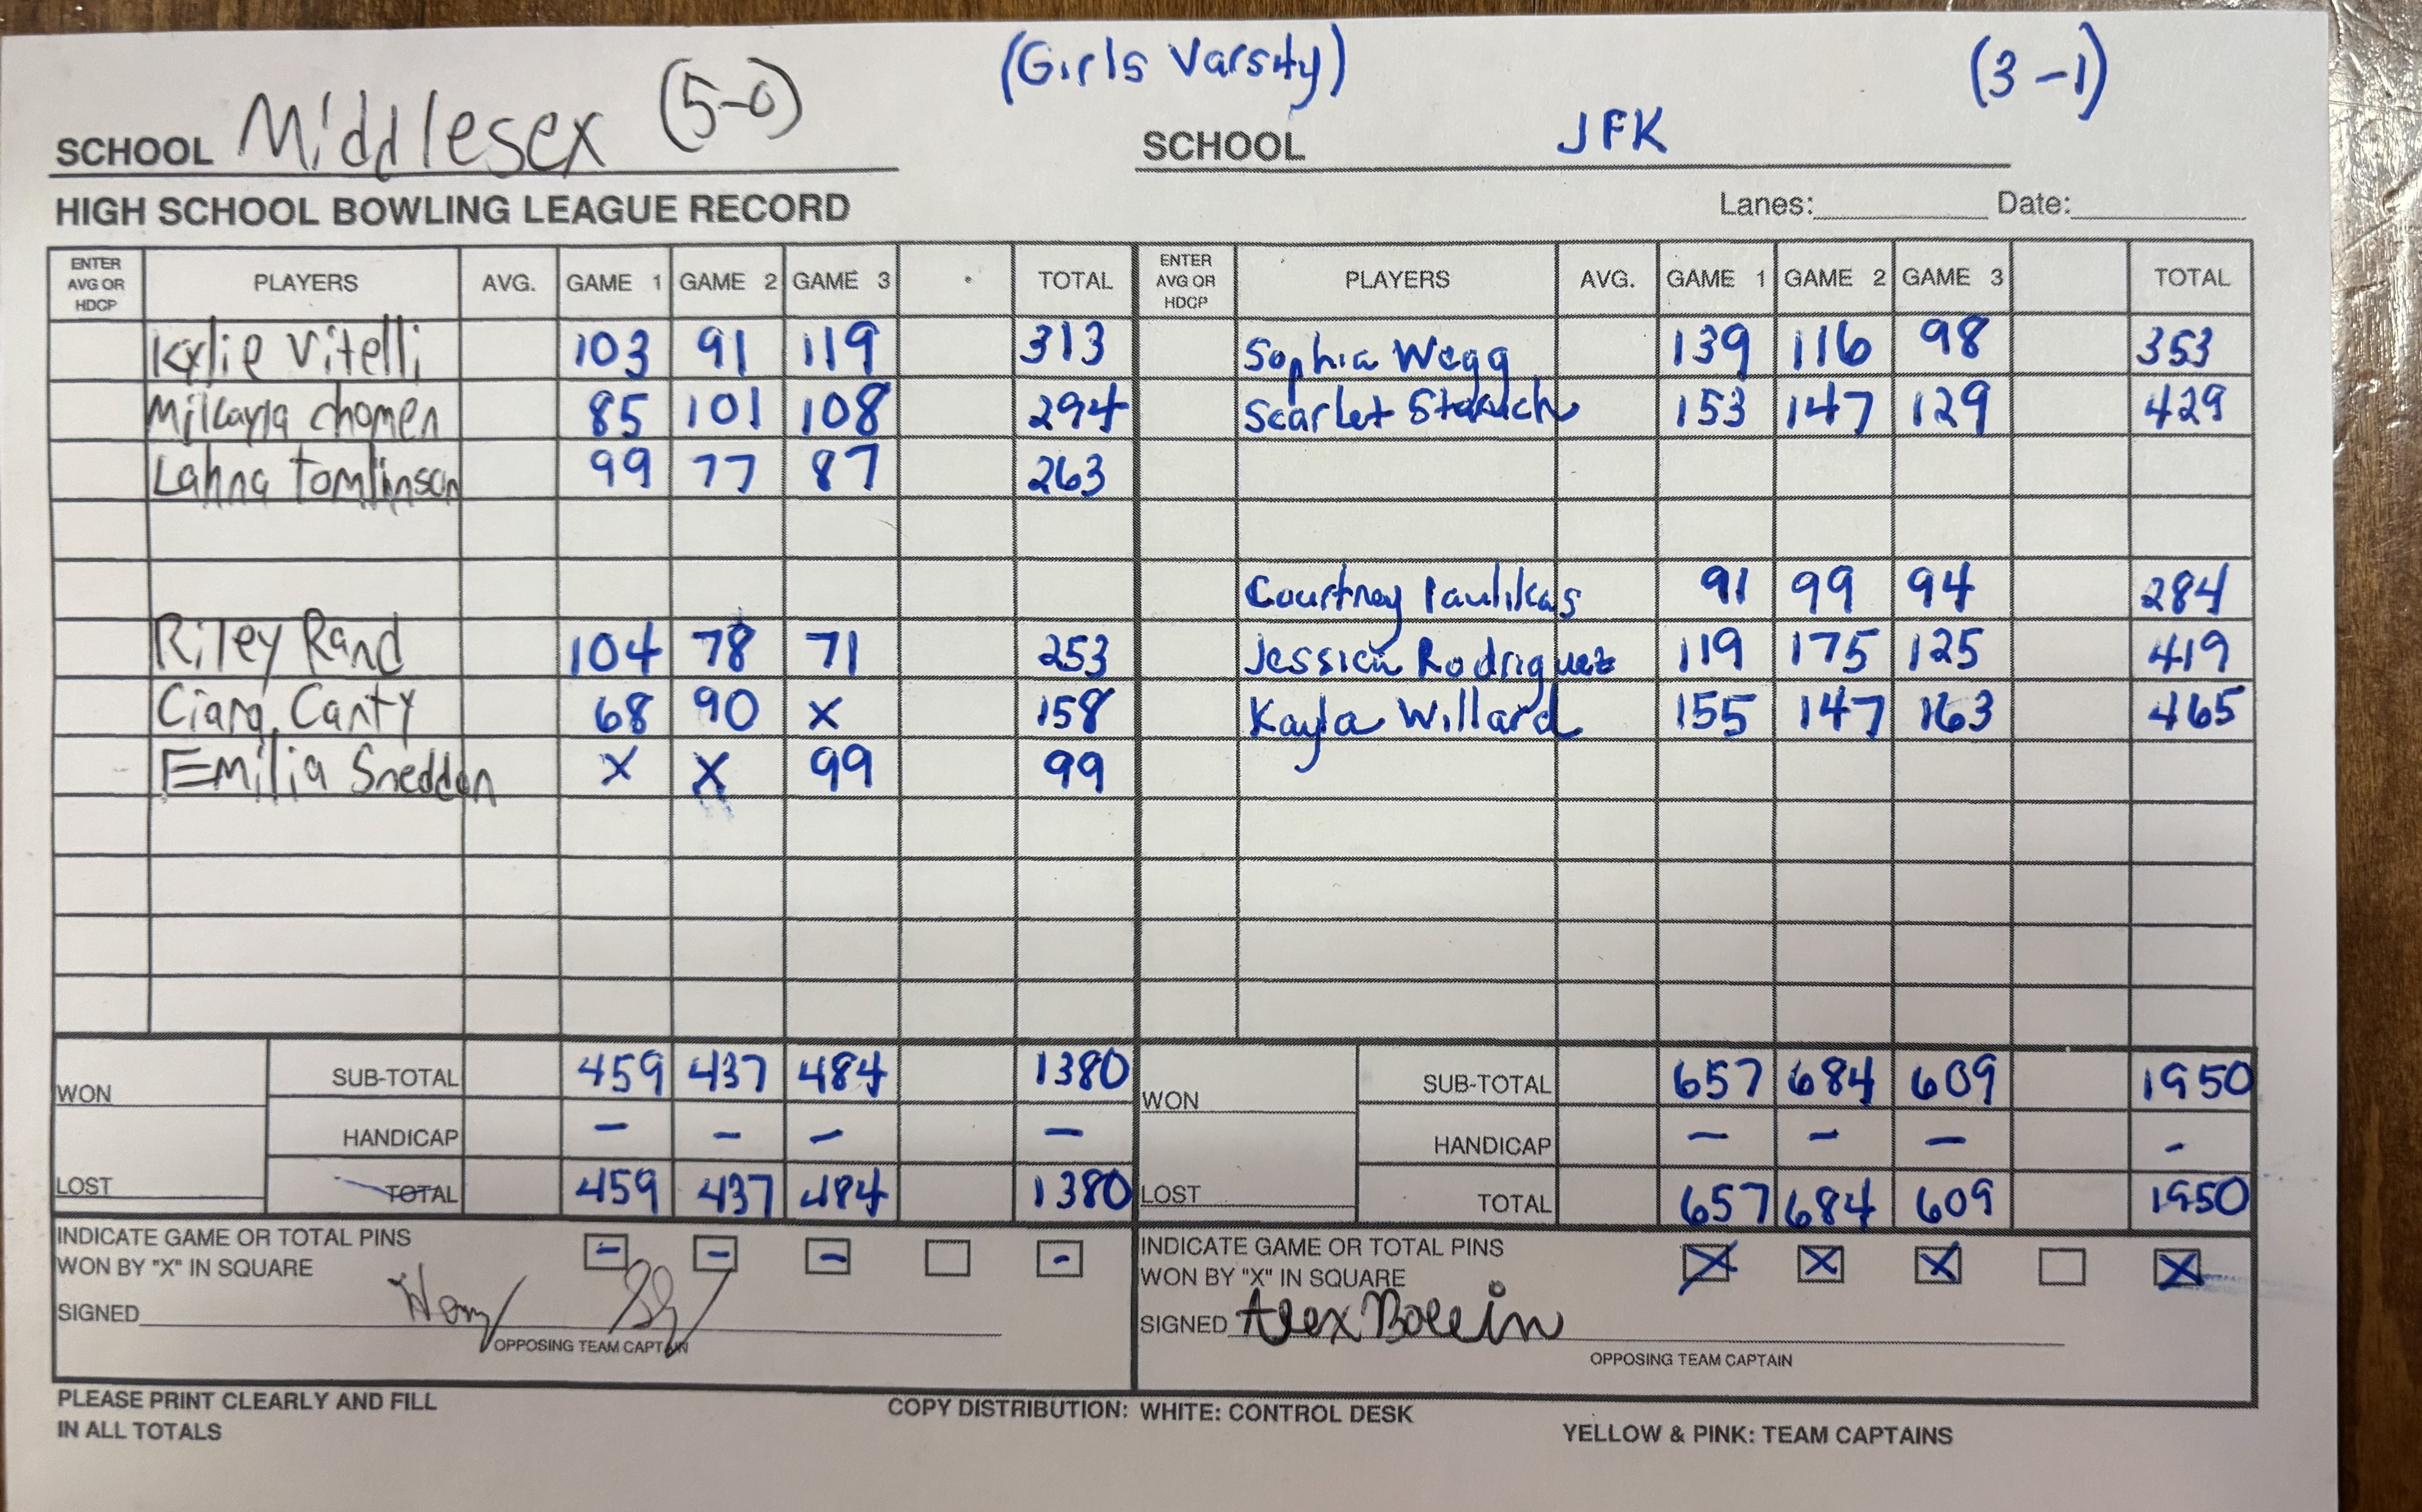 (Girls Varsity)
SCHOOL Middlesex (5-0)
SCHOOL JFK (3-1)
HIGH SCHOOL BOWLING LEAGUE RECORD
Lanes: Date:
ENTER AVG OR HDCP PLAYERS AVG. GAME 1 GAME 2 GAME 3 TOTAL ENTER AVG OR HDCP PLAYERS AVG. GAME 1 GAME 2 GAME 3 TOTAL
Kylie Vitelli 103 91 119 313 Sophia Wegg 139 116 98 353
Mikayla chomen 85 101 108 294 Scarlet 153 147 129 429
Lahna Tomlinson 99 77 87 263
Courtney Paulikas 91 99 94 284
Riley Rand 104 78 71 253 Jessica Rodriguez 119 175 125 419
Ciara Canty 68 90 X 158 Kayla Willard 155 147 163 465
Emilia Sneddon X X 99 99
WON SUB-TOTAL 459 437 484 1380 WON SUB-TOTAL 657 684 609 1950
HANDICAP – – – – HANDICAP – – – -
LOST TOTAL 459 437 484 1380 LOST TOTAL 657 684 609 1950
INDICATE GAME OR TOTAL PINS INDICATE GAME OR TOTAL PINS
WON BY "X" IN SQUARE - - - - WON BY "X" IN SQUARE X X X X
SIGNED SIGNED Alex
OPPOSING TEAM CAPTAIN OPPOSING TEAM CAPTAIN
PLEASE PRINT CLEARLY AND FILL
IN ALL TOTALS
COPY DISTRIBUTION: WHITE: CONTROL DESK
YELLOW & PINK: TEAM CAPTAINS